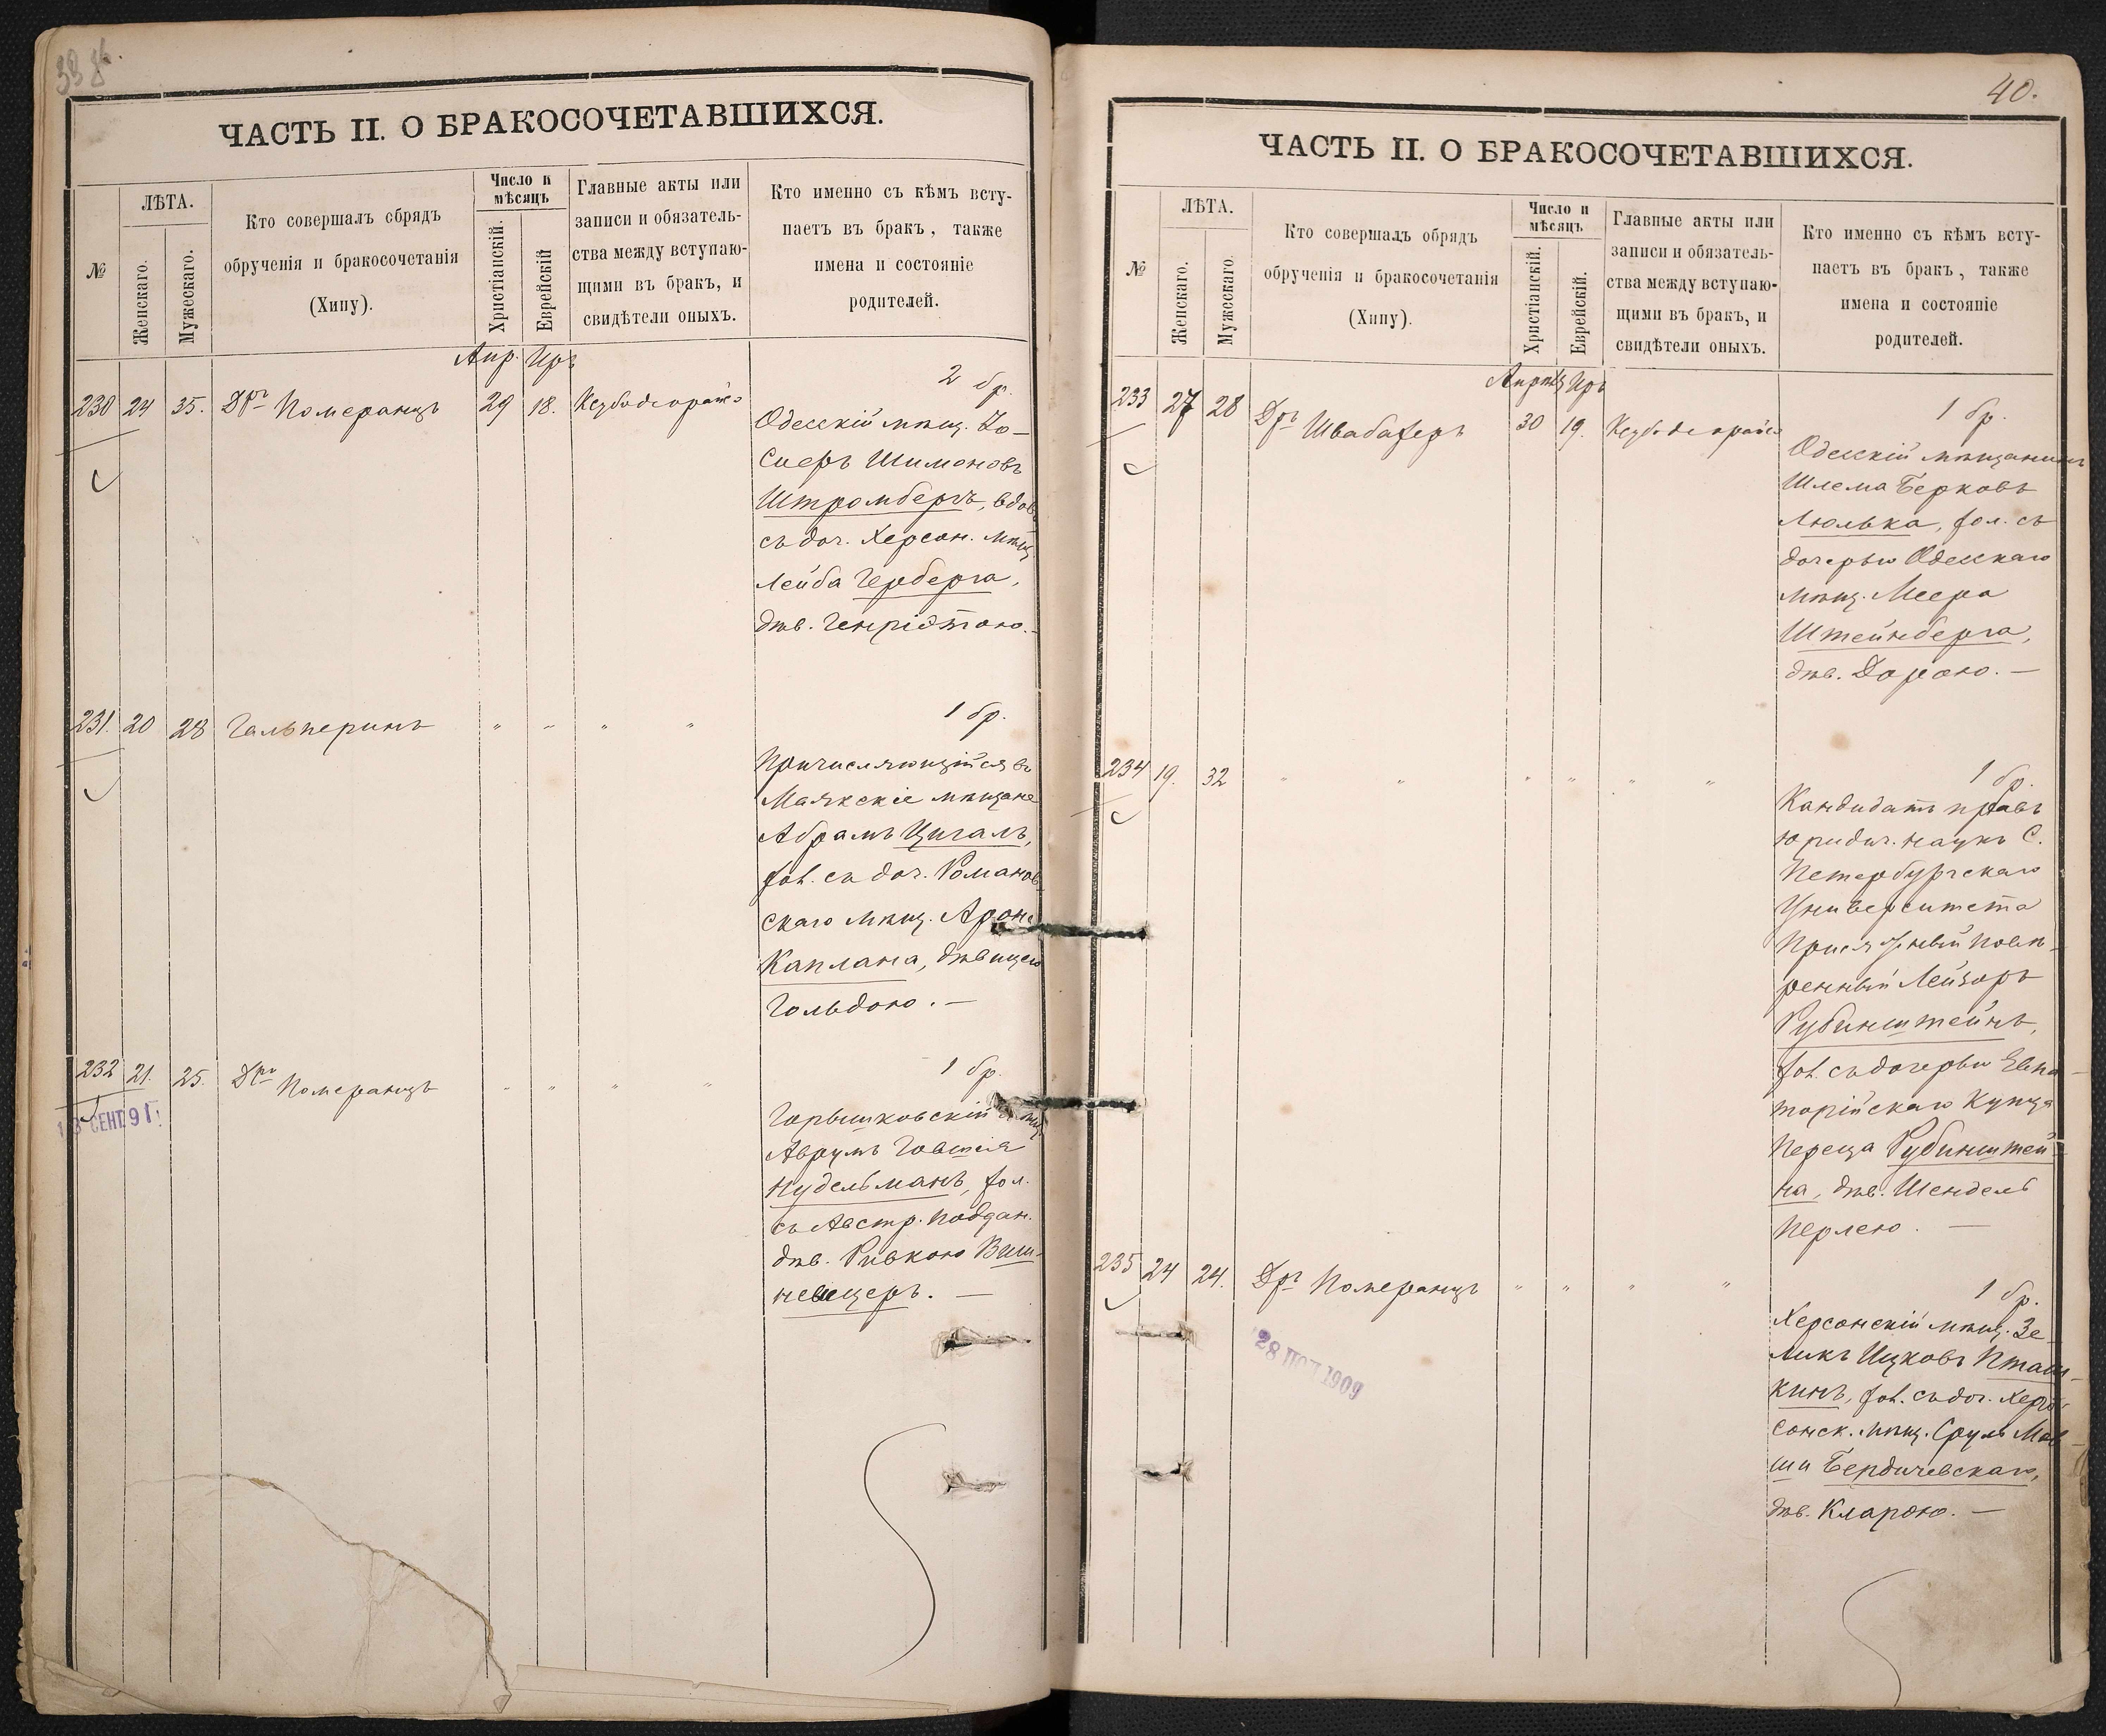 ЧАСТЬ II. О БРАКОСОЧЕТАВШИХСЯ.
№
ЛѢТА.
Женскаго.
Мужескаго.
Кто совершалъ обрядъ
обрученія и бракосочетанія
(Хипу).
Число и
мѣсяцъ
Христіанскій.
Еврейскій
Главные акты или
записи и обязатель-
ства между вступаю-
щими въ бракъ, и
свидѣтели оныхъ.
Кто именно съ кѣмъ всту-
паетъ въ бракъ, также
имена и состояніе
родителей.
Апр. Иръ
230 24 35. Дръ Померанцъ 29 18.
2 бр.
Одесскій мѣщ.
Шимоновъ
Штромбергъ, вдов.
съ доч. Херсон. мѣщ.
Лейба Герберга,
дѣв. Генріэтою.
231. 20 28 Гальперинъ " " " "
1 бр.
Причисляющійся въ
Маякскіе мѣщане
Абрамъ Цигаль,
хол. съ доч. Романов-
скаго мѣщ. Арона
Каплана, дѣвицею
Гольдою. —
232 21. 25. Дръ Померанцъ " " " "
СЕНТ 91
1 бр.
мѣщ.
Аврумъ
Нудельманъ, хол.
съ Австр. поддан.
дѣв. Ривкою Виш-
40.
ЧАСТЬ II. О БРАКОСОЧЕТАВШИХСЯ.
№
ЛѢТА.
Женскаго.
Мужескаго.
Кто совершалъ обрядъ
обрученія и бракосочетанія
(Хипу).
Число и
мѣсяцъ
Христіанскій.
Еврейскій.
Главные акты или
записи и обязатель-
ства между вступаю-
щими въ бракъ, и
свидѣтели оныхъ.
Кто именно съ кѣмъ всту-
паетъ въ бракъ, также
имена и состояніе
родителей.
Апрѣль Иръ
233 27 28 Дръ Швабахеръ 30 19.
1 бр.
Одесскій мѣщанинъ
Шлема Берковъ
Люлька, хол. съ
дочерью Одесскаго
мѣщ. Меера
Штейнберга,
дѣв. Дорою. —
234 19. 32 " " " " " "
1 бр.
Кандидатъ правъ
юридич. наукъ С.
Петербургскаго
Университета
Присяжный повѣ-
ренный Лейзоръ
Рубинштейнъ,
хол. съ дочерью Евпа-
торійскаго Купца
Переца Рубинштей-
на, дѣв. Шендель
Перлею. —
235 24 24. Дръ Померанцъ " " " "
1909
1 бр.
Херсонскій мѣщ. Зе-
ликъ Ицковъ Пташ-
кинъ, хол. съ доч. Хер-
сонск. мѣщ. Сруль Мов-
ши Бердичевскаго,
дѣв. Кларою. —